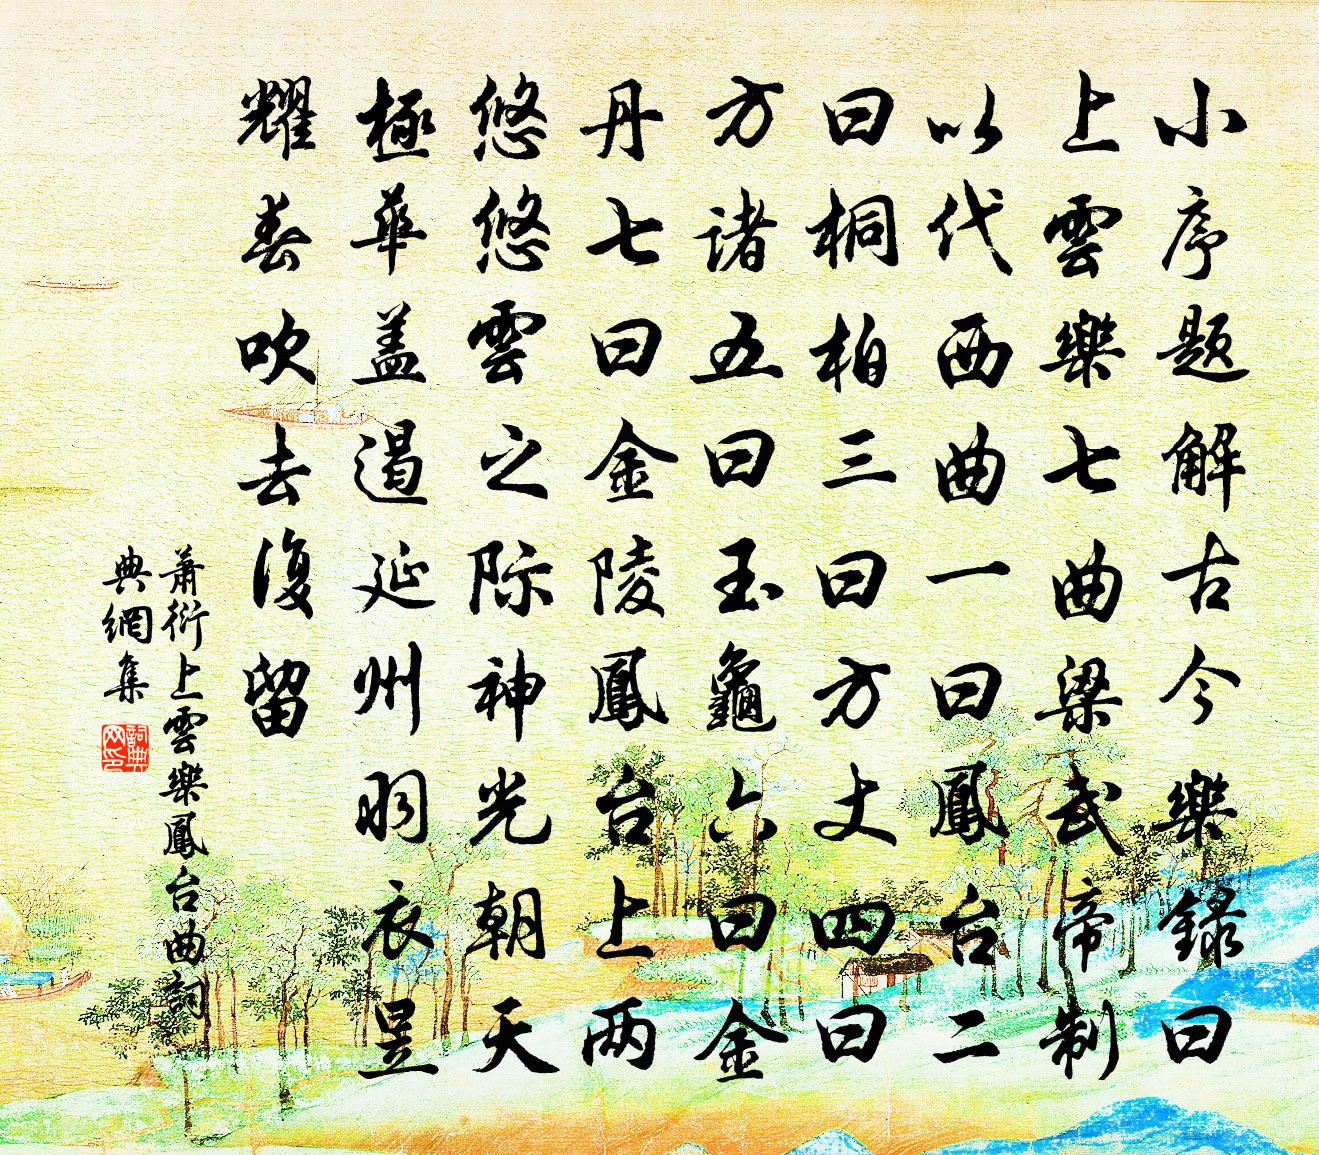 小序题解古今樂錄曰
上雲樂七曲梁武帝制
以代西曲一曰鳳台二
曰桐柏三曰方丈四曰
方诸五曰玉龜六曰金
丹七曰金陵鳳台上两
悠悠雲之际神光朝天
極華盖遏延州羽衣昱
耀春吹去復留
萧衍上雲樂鳳台曲詞
典網集
詞典
网印